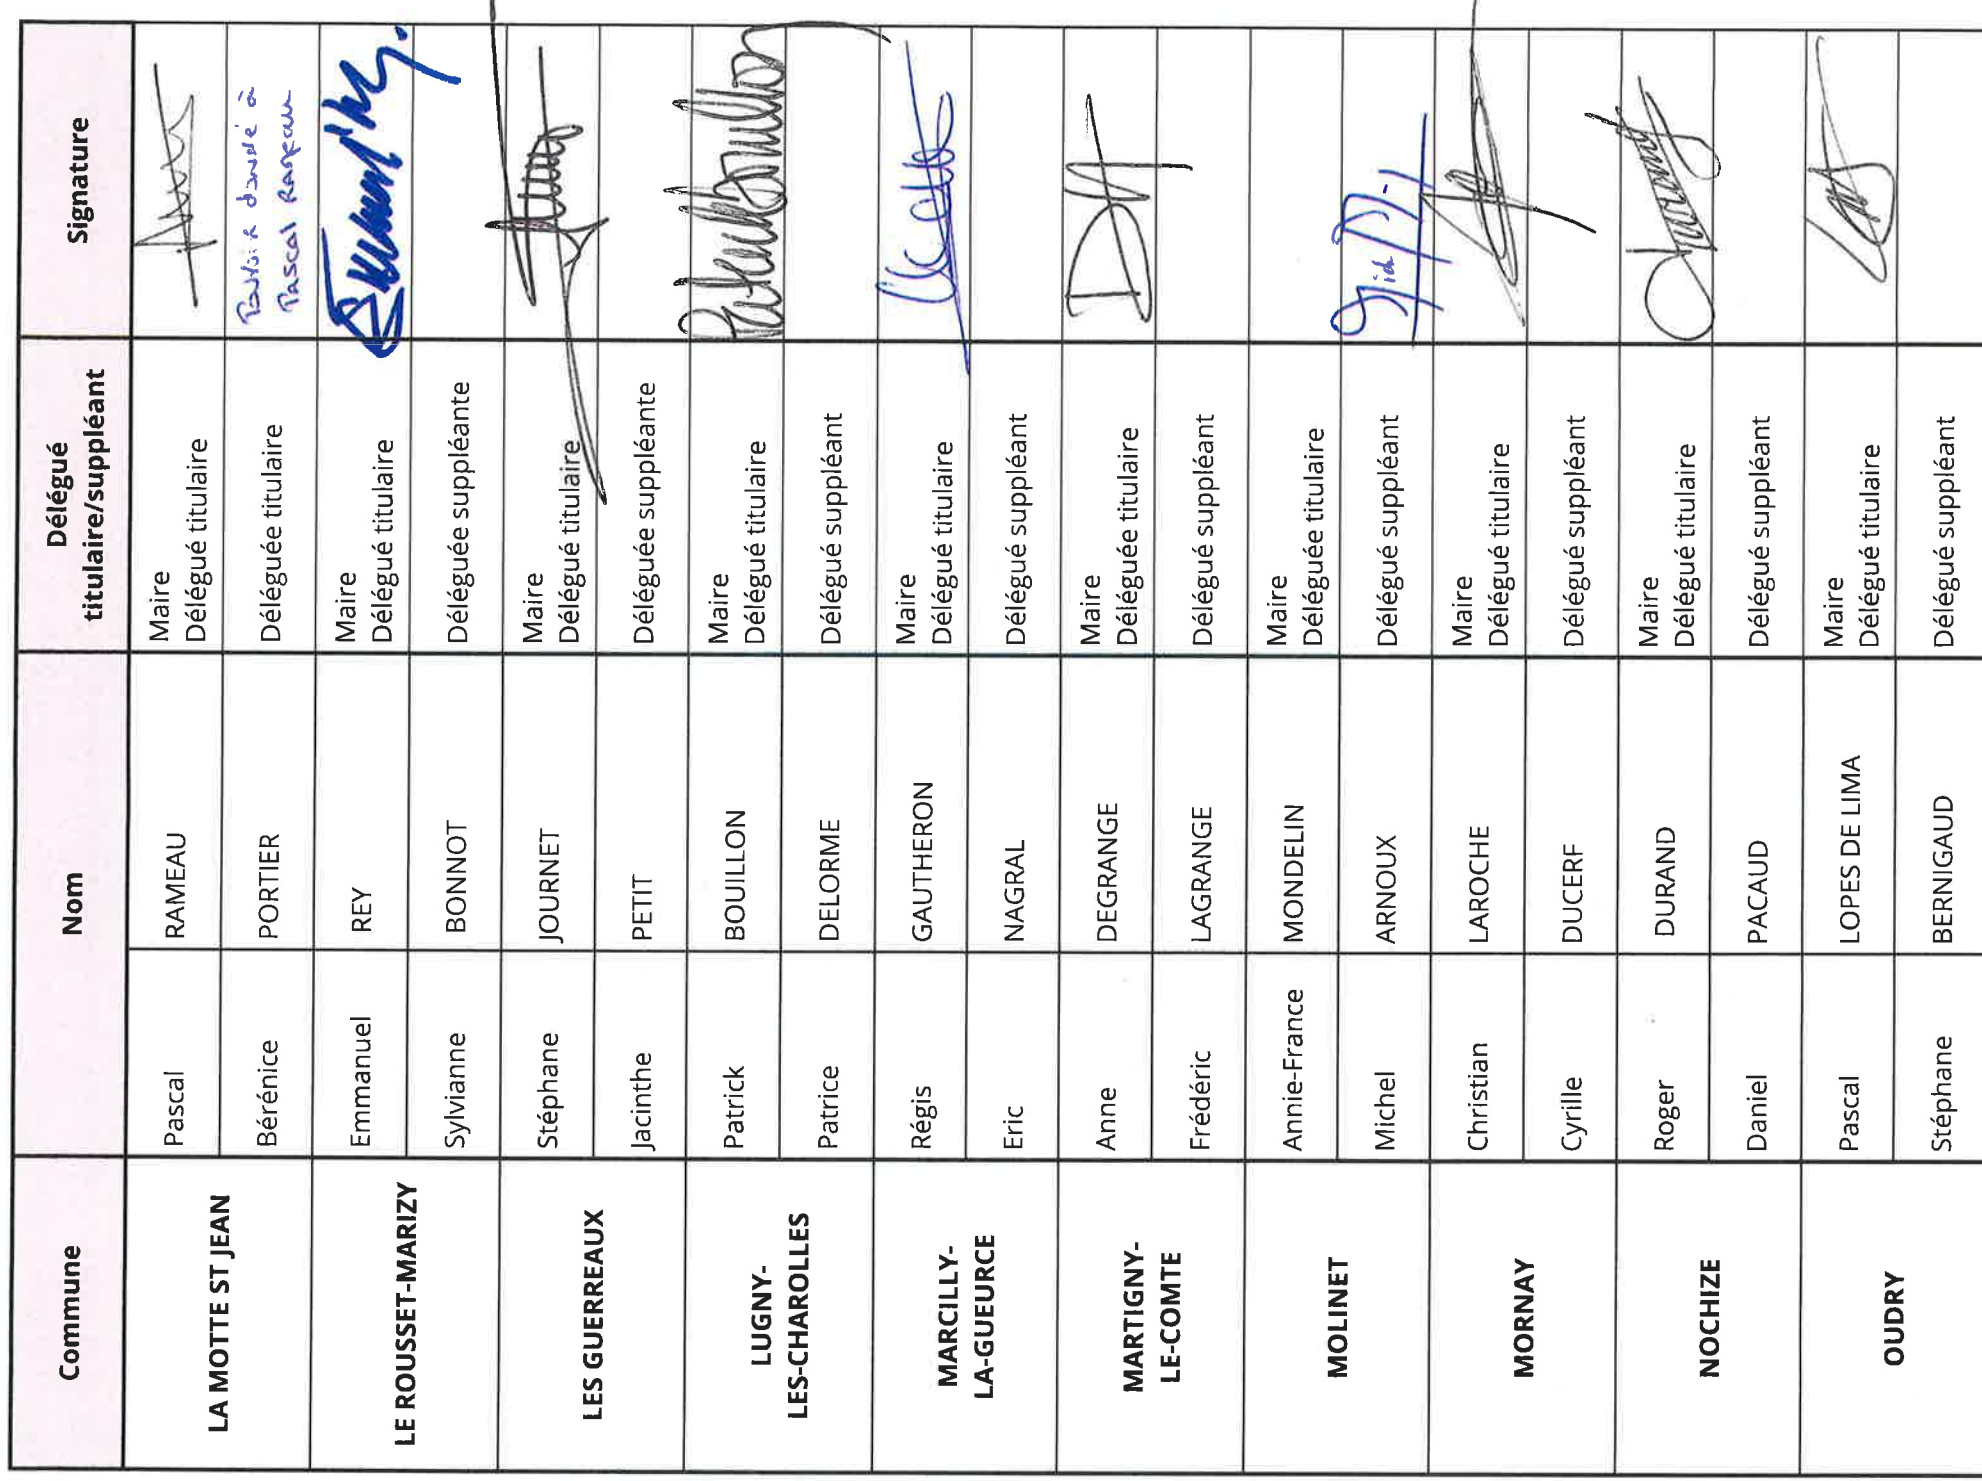 Commune
Nom
Délégué
titulaire/suppléant
Signature
LA MOTTE ST JEAN
Pascal
RAMEAU
Maire
Délégué titulaire
Bérénice
PORTIER
Déléguée titulaire
Pouvoir donné à
Pascal Rameau
LE ROUSSET-MARIZY
Emmanuel
REY
Maire
Délégué titulaire
Sylvianne
BONNOT
Déléguée suppléante
LES GUERREAUX
Stéphane
JOURNET
Maire
Délégué titulaire
Jacinthe
PETIT
Déléguée suppléante
LUGNY-
LES-CHAROLLES
Patrick
BOUILLON
Maire
Délégué titulaire
Patrice
DELORME
Délégué suppléant
MARCILLY-
LA-GUEURCE
Régis
GAUTHERON
Maire
Délégué titulaire
Eric
NAGRAL
Délégué suppléant
MARTIGNY-
LE-COMTE
Anne
DEGRANGE
Maire
Déléguée titulaire
Frédéric
LAGRANGE
Délégué suppléant
MOLINET
Annie-France
MONDELIN
Maire
Déléguée titulaire
Michel
ARNOUX
Délégué suppléant
MORNAY
Christian
LAROCHE
Maire
Délégué titulaire
Cyrille
DUCERF
Délégué suppléant
NOCHIZE
Roger
DURAND
Maire
Délégué titulaire
Daniel
PACAUD
Délégué suppléant
OUDRY
Pascal
LOPES DE LIMA
Maire
Délégué titulaire
Stéphane
BERNIGAUD
Délégué suppléant